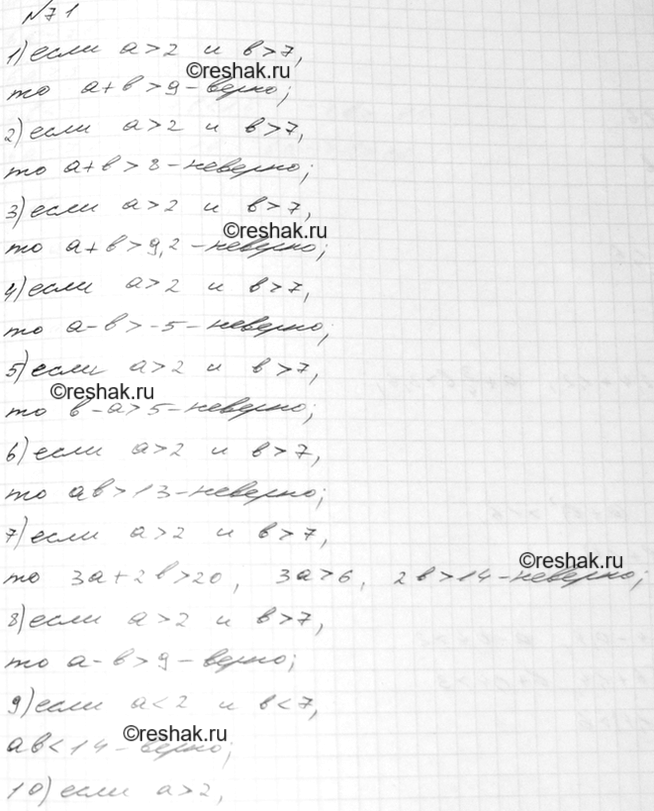 №71
1) если a>2 и b>7,
©reshak.ru
то a+b>9 - верно;
2) если a>2 и b>7,
то a+b>8 - неверно;
3) если a>2 и b>7,
©reshak.ru
то a+b>9,2 - неверно;
4) если a>2 и b>7,
то a-b>-5 - неверно;
5) если a>2 и b>7,
©reshak.ru
то b-a>5 - неверно;
6) если a>2 и b>7,
то ab>13 - неверно;
7) если a>2 и b>7,
©reshak.ru
то 3a+2b>20, 3a>6, 2b>14 - неверно;
8) если a>2 и b>7,
то a-b>9 - верно;
9) если a<2 и b<7,
©reshak.ru
ab<14 - верно;
10) если a>2,